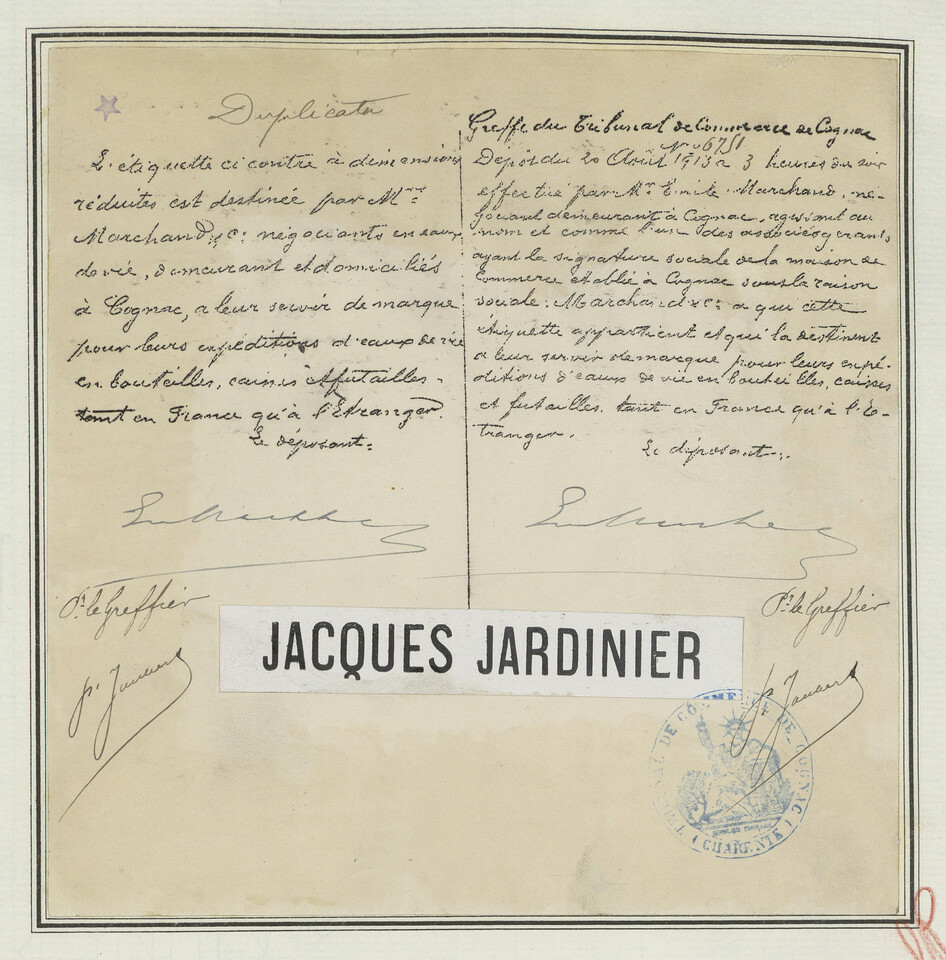 Duplicata
L'étiquette ci contre à dimensions
réduites est destinée par Mrs
Marchand & Cie négociants en eaux
de vie, demeurant et domiciliés
à Cognac, a leur servir de marque
pour leurs expéditions d'eaux de vie
en bouteilles, caisses et futailles
tant en France qu'à l'Etranger.
Le déposant:
Pr. le Greffier
Greffe du Tribunal de Commerce de Cognac
No 6751
Dépôt du 20 Août 1913 a 3 heures du soir
effectué par Mr Emile Marchand, né-
gociant demeurant à Cognac, agissant au
nom et comme l'un des associés gérants
ayant la signature sociale de la maison de
Commerce établie à Cognac sous la raison
sociale: Marchand & Cie a qui cette
étiquette appartient et qui la destinent
a leur servir de marque pour leurs expé-
ditions d'eaux de vie en bouteilles, caisses
et futailles, tant en France qu'à l'E-
tranger.
Le déposant:
Pr. le Greffier
JACQUES JARDINIER
TRIBUNAL DE COMMERCE DE COGNAC (CHARENTE)